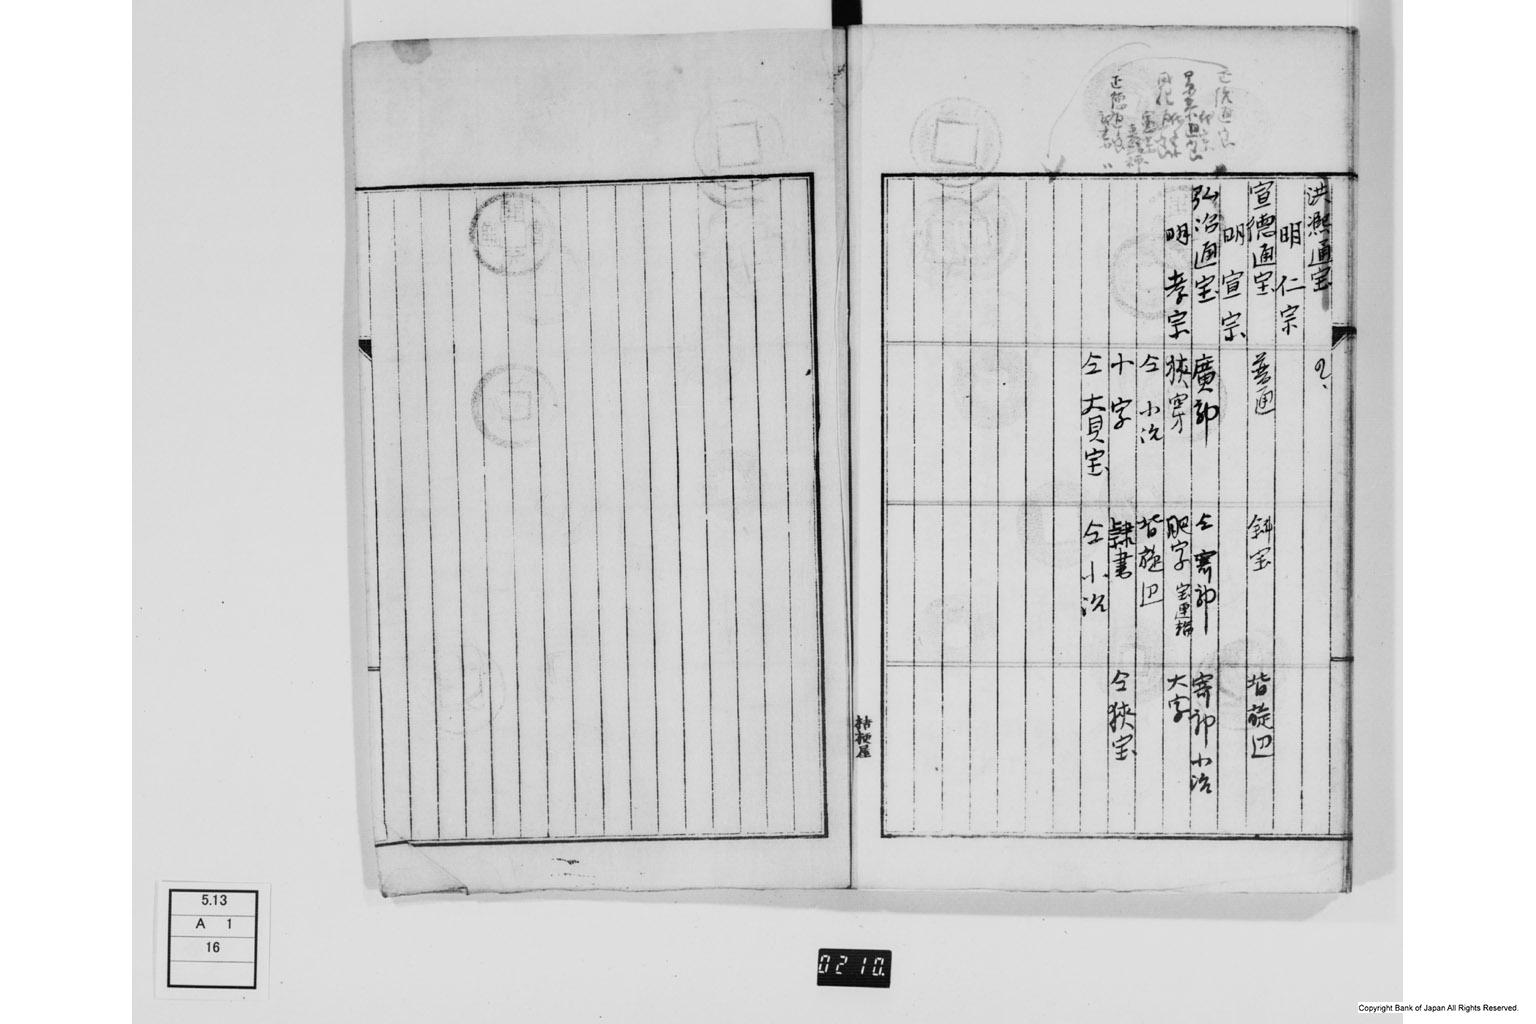 洪熙通宝
明 仁宗
宣德通宝
明 宣宗
弘治通宝
明 孝宗
普通
廣郭
狹穿
仝 小治
十字
仝 大貝宝
斜宝
仝 寄郭
肥字
皆旋辺
隷書
仝 小治
皆旋辺
寄郭小治
大字
仝狹宝
桔梗屋
5.13
A 1
16
0210.
Copyright Bank of Japan All Rights Reserved.